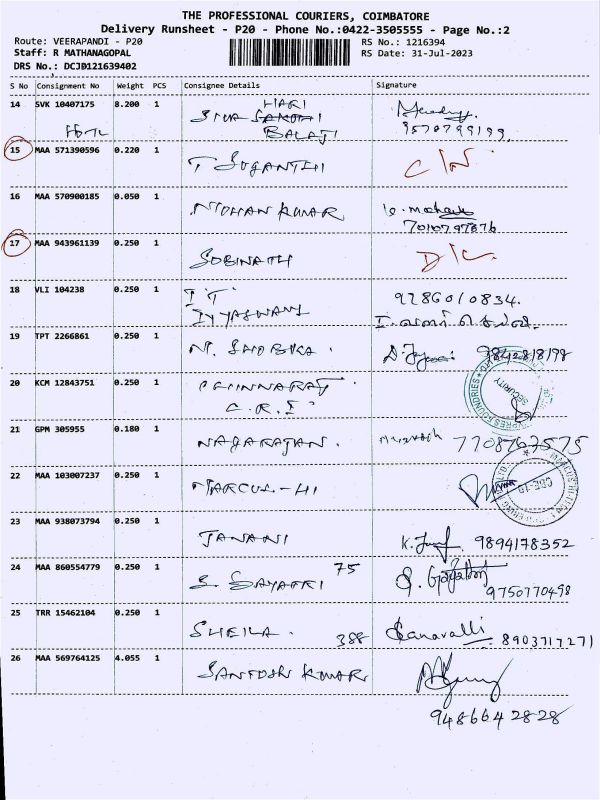 THE PROFESSIONAL COURIERS, COIMBATORE
Delivery Runsheet - P20 - Phone No.:0422-3505555 - Page No.:2
Route: VEERAPANDI - P20
RS No.: 1216394
Staff: R MATHANAGOPAL
RS Date: 31-Jul-2023
DRS No.: DCJD121639402
S No Consignment No Weight PCS Consignee Details Signature
14 SVK 10407175 8.200 1
HARI
BALAJI
15 MAA 571390596 0.220 1 T SUGANTHI
16 MAA 570900185 0.050 1 MOHAN KUMAR
17 MAA 943961139 0.250 1 SOBINATH D/C.
18 VLI 104238 0.250 1 I.T. 9286010834.
19 TPT 2266861 0.250 1 9842818198
20 KCM 12843751 0.250 1 CHINNARAJ
C.R.I
SECURITY
21 GPM 305955 0.180 1 NAGARAJAN. 7708767575
22 MAA 103007237 0.250 1
23 MAA 938073794 0.250 1 JANANI 9894178352
24 MAA 860554779 0.250 1 75
9750770498
25 TRR 15462104 0.250 1 SHEILA. 388 8903717271
26 MAA 569764125 4.055 1 SANTOSH KUMAR
9486642828